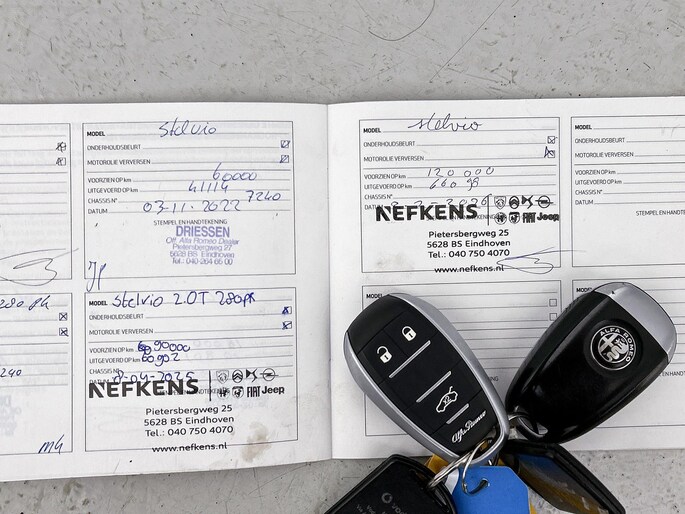 280 pk
240
MH
MODEL Stelvio
ONDERHOUDSBEURT
MOTOROLIE VERVERSEN
VOORZIEN OP km 60000
UITGEVOERD OP km 41114
CHASSIS N° 7240
DATUM 03-11-2022
STEMPEL EN HANDTEKENING
DRIESSEN
Off. Alfa Romeo Dealer
Pietersbergweg 27
5628 BS Eindhoven
Tel.: 040-264 65 00
MODEL Stelvio 2.0T 280pk
ONDERHOUDSBEURT
MOTOROLIE VERVERSEN
VOORZIEN OP km 90000
UITGEVOERD OP km 60902
CHASSIS N°
DATUM
NEFKENS
FIAT Jeep
Pietersbergweg 25
5628 BS Eindhoven
Tel.: 040 750 4070
www.nefkens.nl
MODEL Stelvio
ONDERHOUDSBEURT
MOTOROLIE VERVERSEN
VOORZIEN OP km 120 000
UITGEVOERD OP km 66098
CHASSIS N°
DATUM
NEFKENS
FIAT Jeep
Pietersbergweg 25
5628 BS Eindhoven
Tel.: 040 750 4070
www.nefkens.nl
MODEL
ONDERHOUDSBEURT
MOTOROLIE VERVERSEN
VOORZIEN OP km
UITGEVOERD OP km
CHASSIS N°
DATUM
MODEL
ONDERHOUDSBEURT
MODEL
Alfa Romeo
ALFA ROMEO